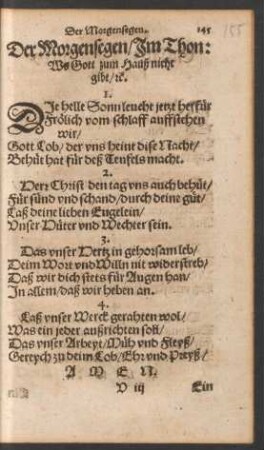 Der Morgensegen. 145
155
Der Morgensegen/Jm Thon:
Wo Gott zum Hauß nicht
gibt/ꝛc.
1.
DJe helle Sonn leucht jetzt herfür
Frölich vom schlaff auffstehen
wir/
Gott Lob/ der vns heint dise Nacht/
Behüt hat für deß Teufels macht.
2.
Herr Christ den tag vns auch behüt/
Für sünd vnd schand/durch deine güt/
Laß deine lieben Engelein/
Vnser Hüter vnd Wechter sein.
3.
Das vnser Hertz in gehorsam leb/
Deim Wort vnd Willn nit widerstreb/
Daß wir dich stets für Augen han/
Jn allem/daß wir heben an.
4.
Laß vnser Werck gerahten wol/
Was ein jeder außrichten soll/
Das vnser Arbeyt/Müh vnd Fleyß/
Gereych zu deim Lob/Ehr vnd Preyß/
A M E N.
V iij Ein